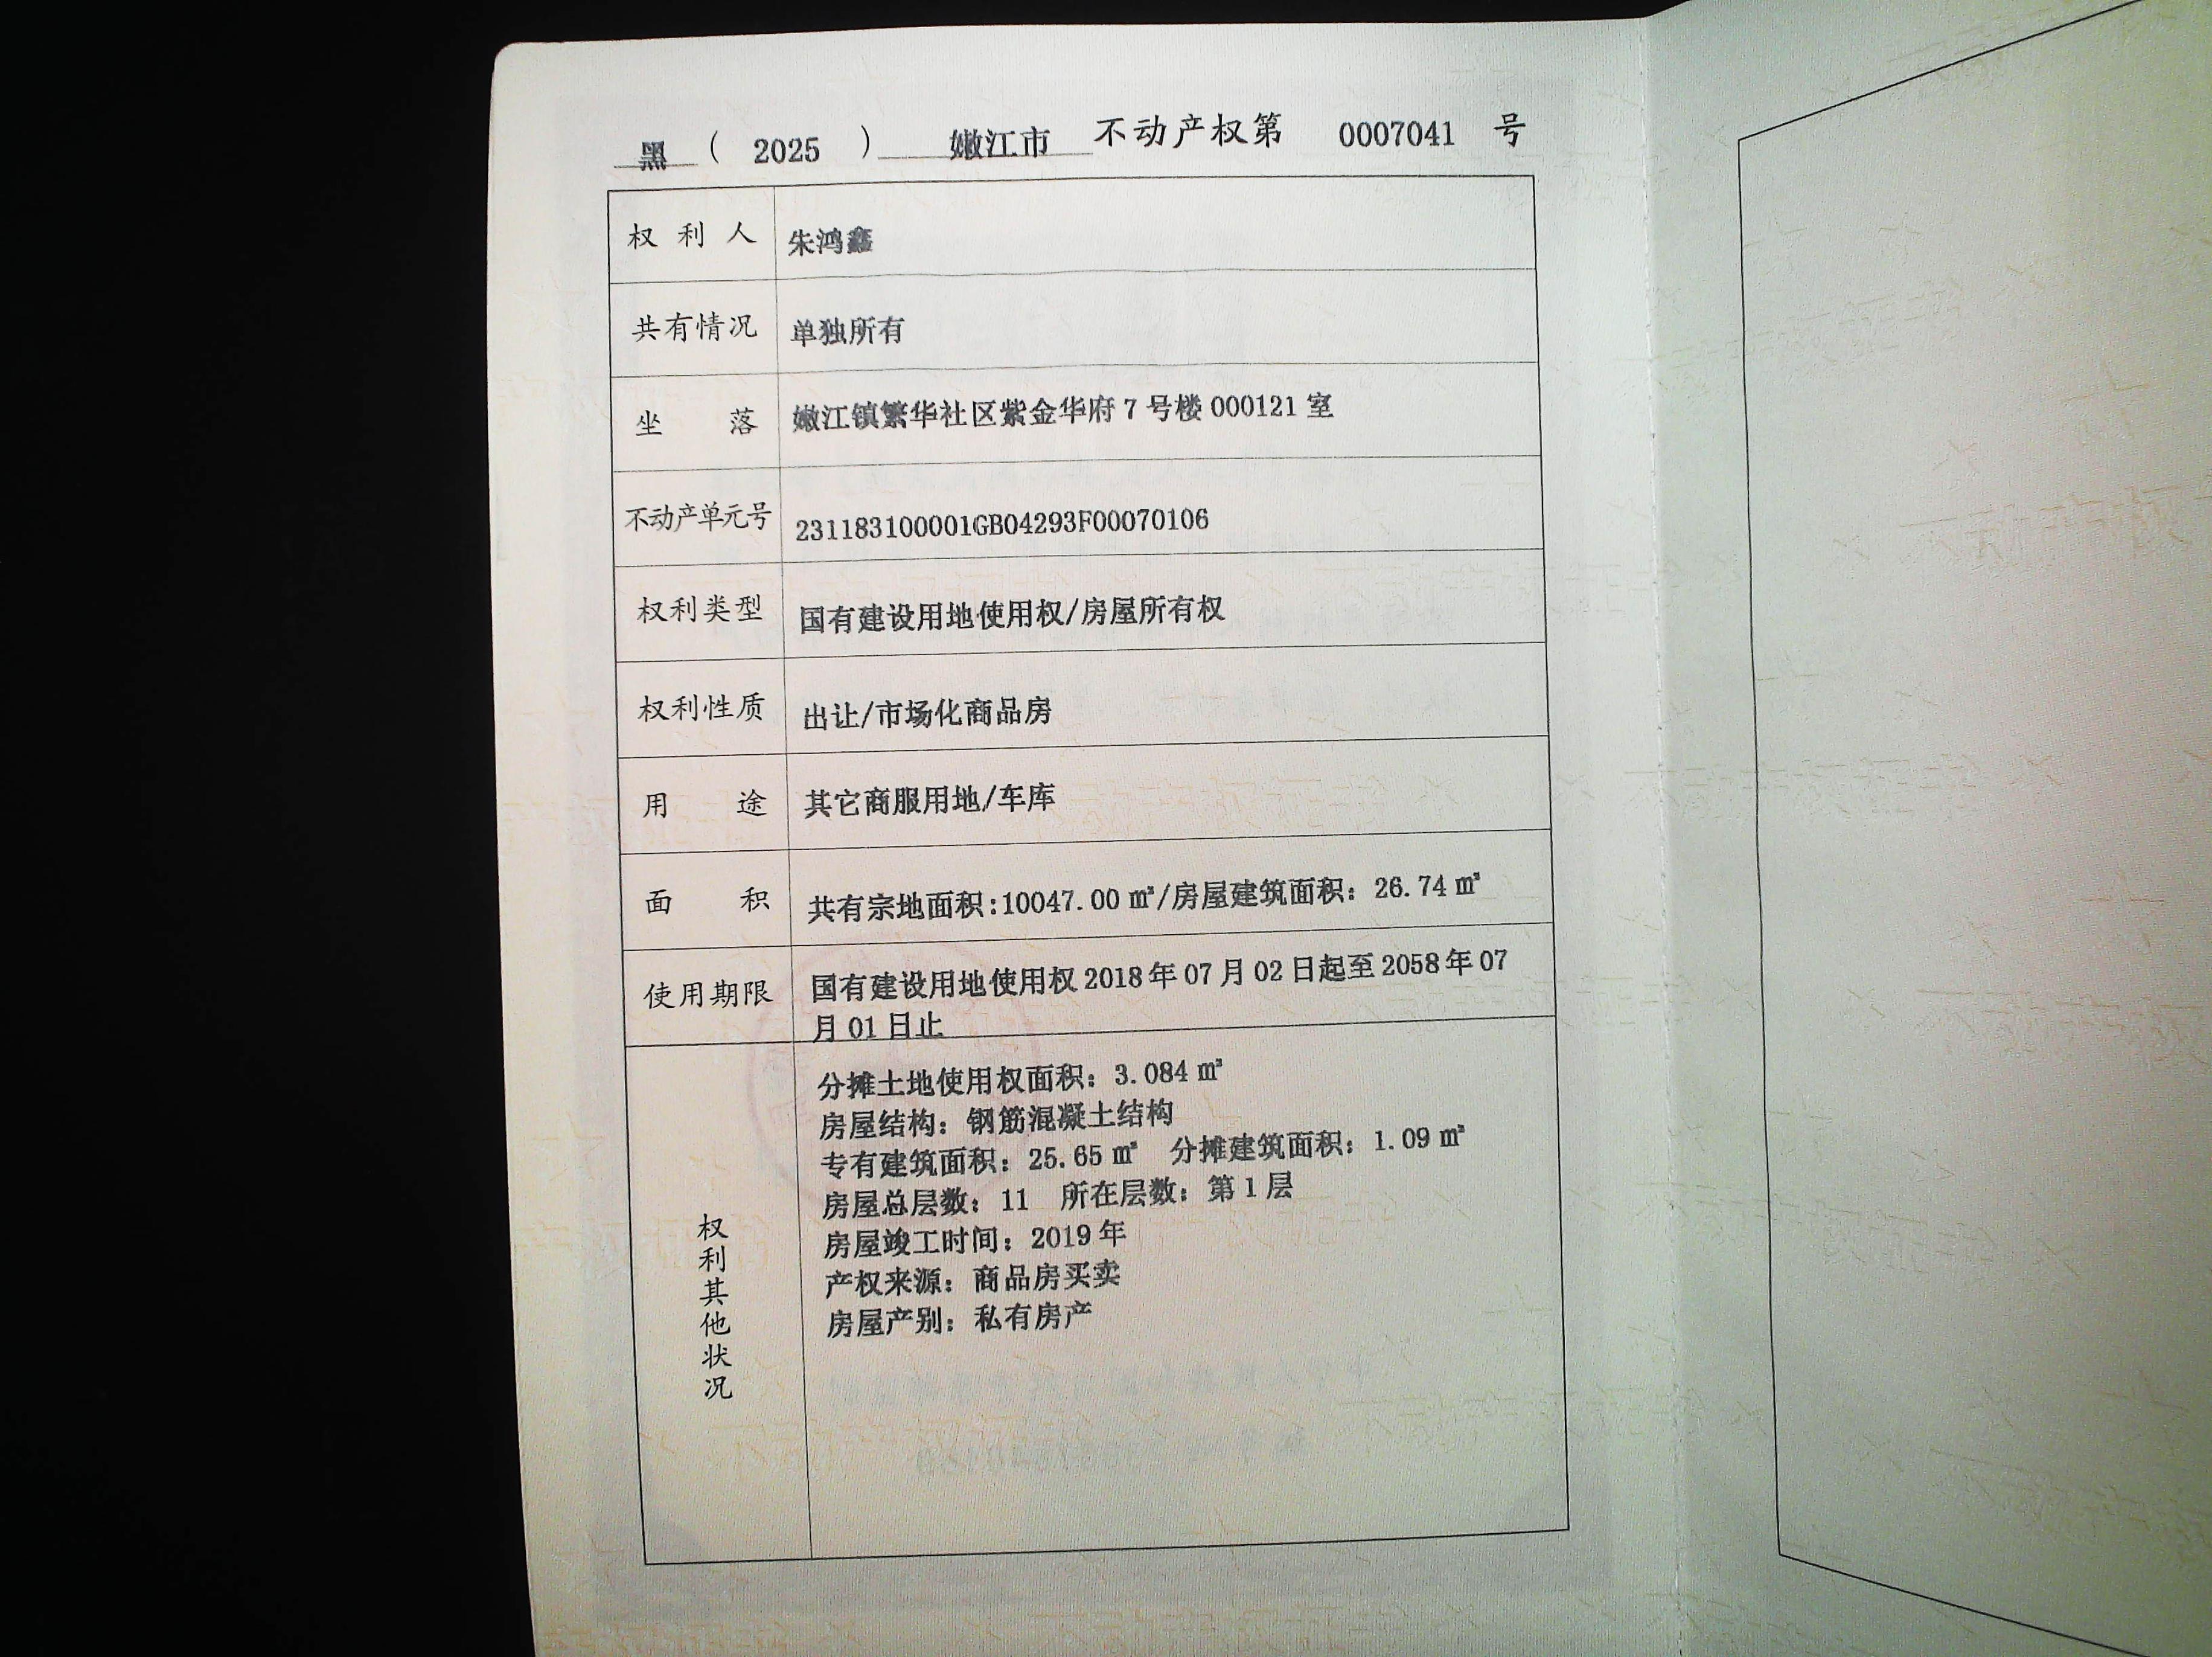 黑 ( 2025 ) 嫩江市 不动产权第 0007041 号
权利人 朱鸿鑫
共有情况 单独所有
坐落 嫩江镇繁华社区紫金华府 7 号楼 000121 室
不动产单元号 231183100001GB04293F00070106
权利类型 国有建设用地使用权/房屋所有权
权利性质 出让/市场化商品房
用途 其它商服用地/车库
面积 共有宗地面积:10047.00 ㎡/房屋建筑面积: 26.74 ㎡
使用期限 国有建设用地使用权 2018 年 07 月 02 日起至 2058 年 07
月 01 日止
权利其他状况
分摊土地使用权面积: 3.084 ㎡
房屋结构: 钢筋混凝土结构
专有建筑面积: 25.65 ㎡ 分摊建筑面积: 1.09 ㎡
房屋总层数: 11 所在层数: 第 1 层
房屋竣工时间: 2019 年
产权来源: 商品房买卖
房屋产别: 私有房产